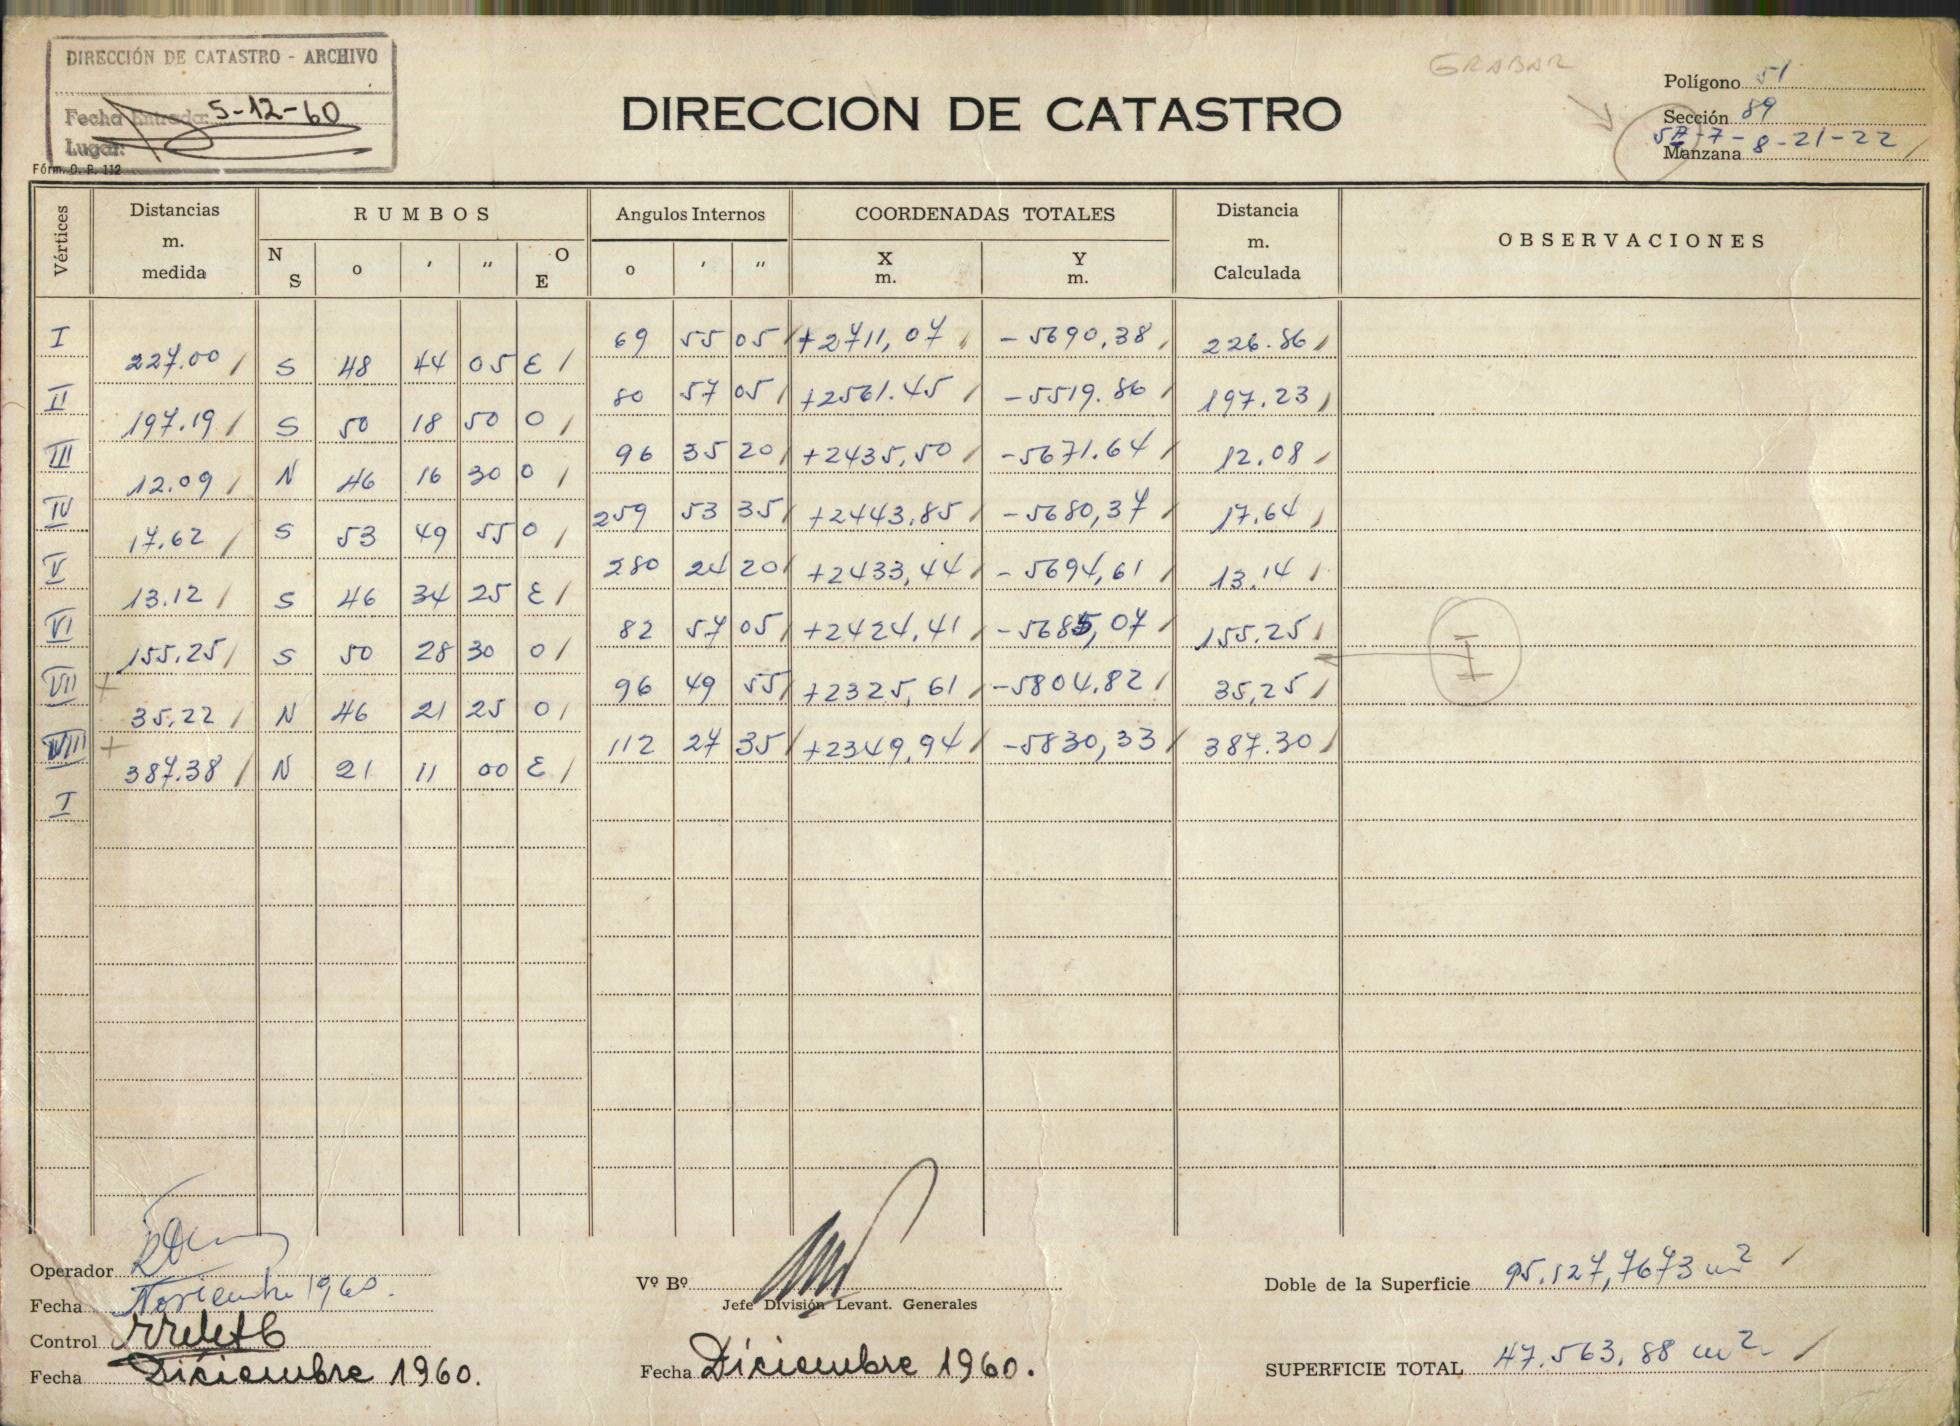 DIRECCIÓN DE CATASTRO - ARCHIVO
Fecha Entrada: 5-12-60
Lugar:
Fórm. D. R. 112
DIRECCION DE CATASTRO
GRABAR
Polígono 51
Sección 89
Manzana 5A-7-8-21-22
Vértices Distancias m. medida RUMBOS Angulos Internos COORDENADAS TOTALES Distancia m. Calculada OBSERVACIONES
N S o ' " O E o ' " X m. Y m.
I 69 55 05 +2711,07 -5690,38 226.86
227.00 S 48 44 05 E
II 80 57 05 +2561.45 -5519.86 197.23
197.19 S 50 18 50 O
III 96 35 20 +2435,50 -5671.64 12.08
12.09 N 46 16 30 O
IV 259 53 35 +2443.85 -5680,37 17.64
17.62 S 53 49 55 O
V 280 24 20 +2433,44 -5694,61 13.14
13.12 S 46 34 25 E
VI 82 57 05 +2424.41 -5685,07 155.25
155.25 S 50 28 30 O
I
VII + 96 49 55 +2325,61 -5804.82 35,25
35.22 N 46 21 25 O
VIII + 112 27 35 +2349,94 -5830,33 387.30
387.38 N 21 11 00 E
I
Operador
Fecha Noviembre 1960.
Control
Fecha Diciembre 1960.
Vº Bº
Jefe División Levant. Generales
Fecha Diciembre 1960.
Doble de la Superficie 95.127,7673 m2
SUPERFICIE TOTAL 47.563,88 m2